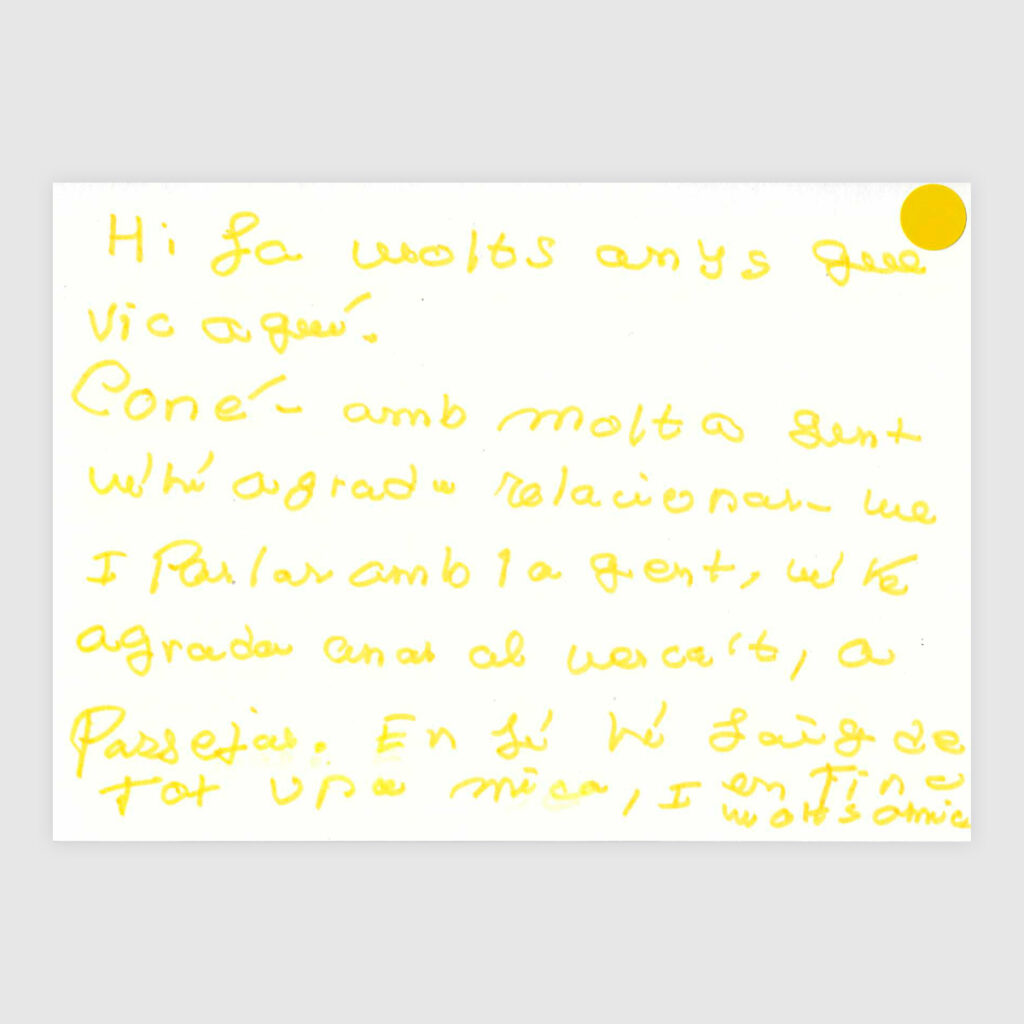 Hi fa molts anys que
vic aquí.
Coné- amb molta gent
m'hi agrada relacionar-me
I Parlar amb la gent,
agrada anar al mercat, a
Passejar. En fi hi faig de
tot una mica, I en Tinc
molts amics